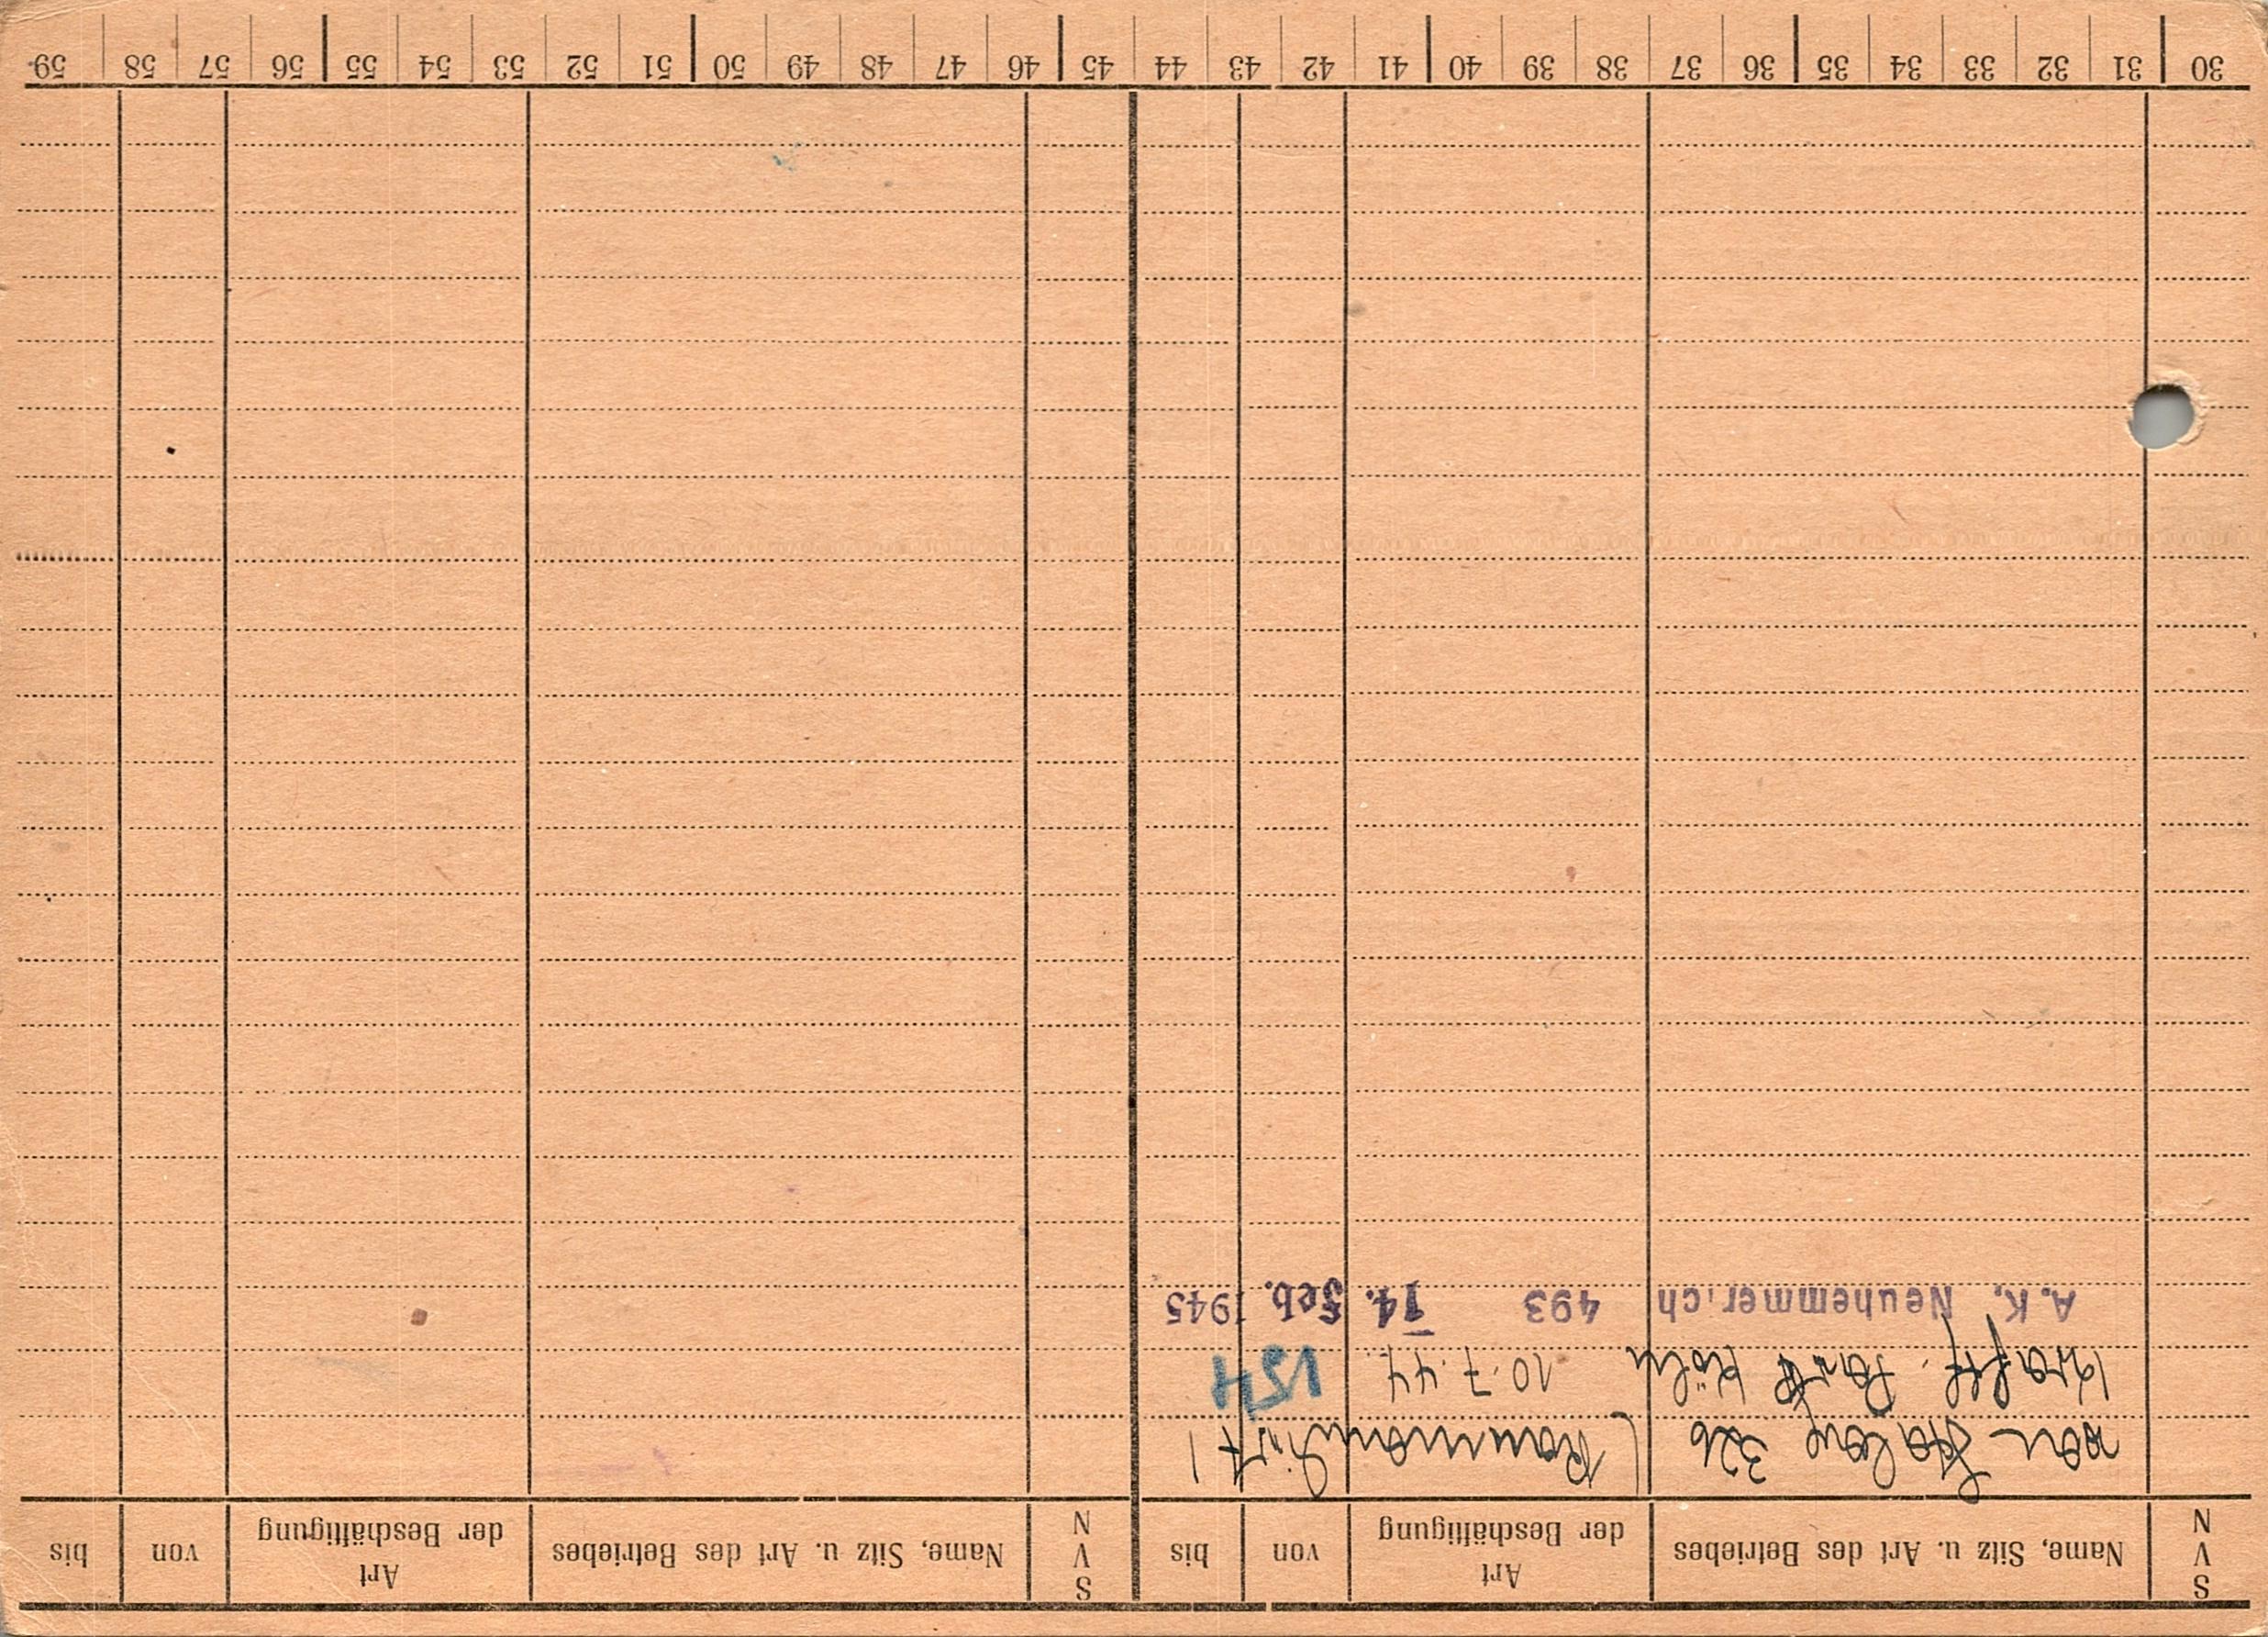 S V N Name, Sitz u. Art des Betriebes Art der Beschäftigung von bis S V N Name, Sitz u. Art des Betriebes Art der Beschäftigung von bis
von Stalag 326
Kraftf. Park Köln 10.7.44. 154
A.K. Neuhemmerich 493 14. Feb. 1945
30 31 32 33 34 35 36 37 38 39 40 41 42 43 44 45 46 47 48 49 50 51 52 53 54 55 56 57 58 59